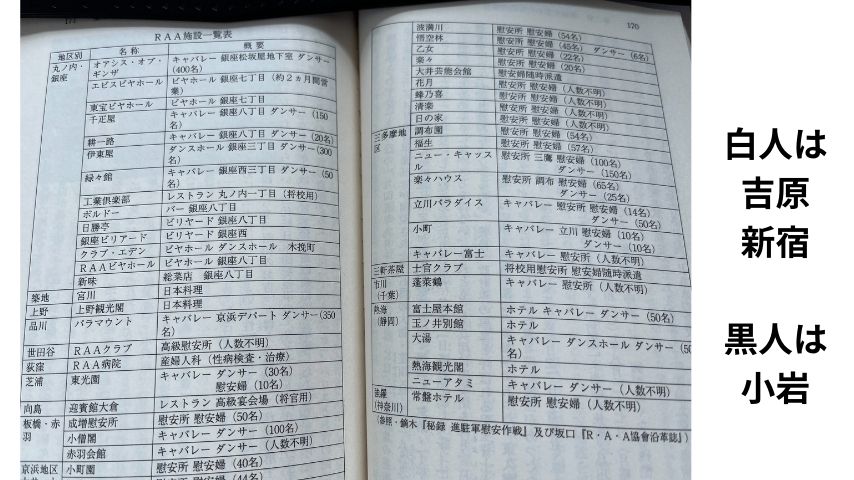 170
ＲＡＡ施設一覧表
地区別 名称 概要
丸ノ内・銀座 オアシス・オブ・ギンザ キャバレー 銀座松坂屋地下室 ダンサー(400名)
エビスビヤホール ビヤホール 銀座七丁目（約２ヵ月間営業）
東宝ビヤホール ビヤホール 銀座七丁目
千疋屋 キャバレー 銀座八丁目 ダンサー（150名）
耕一路 キャバレー 銀座八丁目 ダンサー（20名）
伊東屋 ダンスホール 銀座三丁目 ダンサー(300名)
緑々館 キャバレー 銀座西三丁目 ダンサー（50名）
工業倶楽部 レストラン 丸ノ内一丁目（将校用）
ボルドー バー 銀座八丁目
日勝亭 ビリヤード 銀座八丁目
銀座ビリアード ビリヤード 銀座西
クラブ・エデン ビヤホール ダンスホール 木挽町
ＲＡＡビヤホール ビヤホール 銀座八丁目
新味 総菜店 銀座八丁目
築地 宮川 日本料理
上野 上野観光閣 日本料理
品川 パラマウント キャバレー 京浜デパート ダンサー(350名)
世田谷 ＲＡＡクラブ 高級慰安所（人数不明）
荻窪 ＲＡＡ病院 産婦人科（性病検査・治療）
芝浦 東光園 キャバレー ダンサー（30名）
慰安婦（10名）
向島 迎賓館大倉 レストラン 高級宴会場（将官用）
板橋・赤羽 成増慰安所 慰安所 慰安婦（50名）
小僧閣 キャバレー ダンサー（100名）
赤羽会館 キャバレー ダンサー（人数不明）
京浜地区 小町園 慰安所 慰安婦（40名）
慰安所 慰安婦（44名）
波満川 慰安所 慰安婦（54名）
悟空林 慰安所 慰安婦（45名） ダンサー（6名）
乙女 慰安所 慰安婦（22名）
楽々 慰安所 慰安婦（20名）
大井芸能会館 慰安婦随時派遣
花月 慰安所 慰安婦（人数不明）
蜂乃喜 慰安所 慰安婦（人数不明）
清楽 慰安所 慰安婦（人数不明）
日の家 慰安所 慰安婦（人数不明）
三多摩地区 調布園 慰安所 慰安婦（54名）
福生 慰安所 慰安婦（57名）
ニュー・キャッスル 慰安所 三鷹 慰安婦（100名）
ダンサー（150名）
楽々ハウス 慰安所 調布 慰安婦（65名）
ダンサー（25名）
立川パラダイス キャバレー 慰安所 慰安婦（14名）
ダンサー（50名）
小町 キャバレー 立川 慰安婦（10名）
ダンサー（10名）
キャバレー富士 キャバレー 慰安所（人数不明）
三軒茶屋 士官クラブ 将校用慰安所 慰安婦随時派遣
市川（千葉） 蓬莱鶴 キャバレー 慰安所（人数不明）
熱海（静岡） 富士屋本館 ホテル キャバレー ダンサー（50名）
玉ノ井別館 ホテル
大湯 キャバレー ダンスホール ダンサー（50名）
熱海観光閣 ホテル
ニューアタミ キャバレー ダンサー（人数不明）
強羅（神奈川） 常盤ホテル 慰安所 慰安婦（人数不明）
（参照・鏑木『秘録 進駐軍慰安作戦』及び坂口『Ｒ・Ａ・Ａ協會沿革誌』）
白人は
吉原
新宿
黒人は
小岩